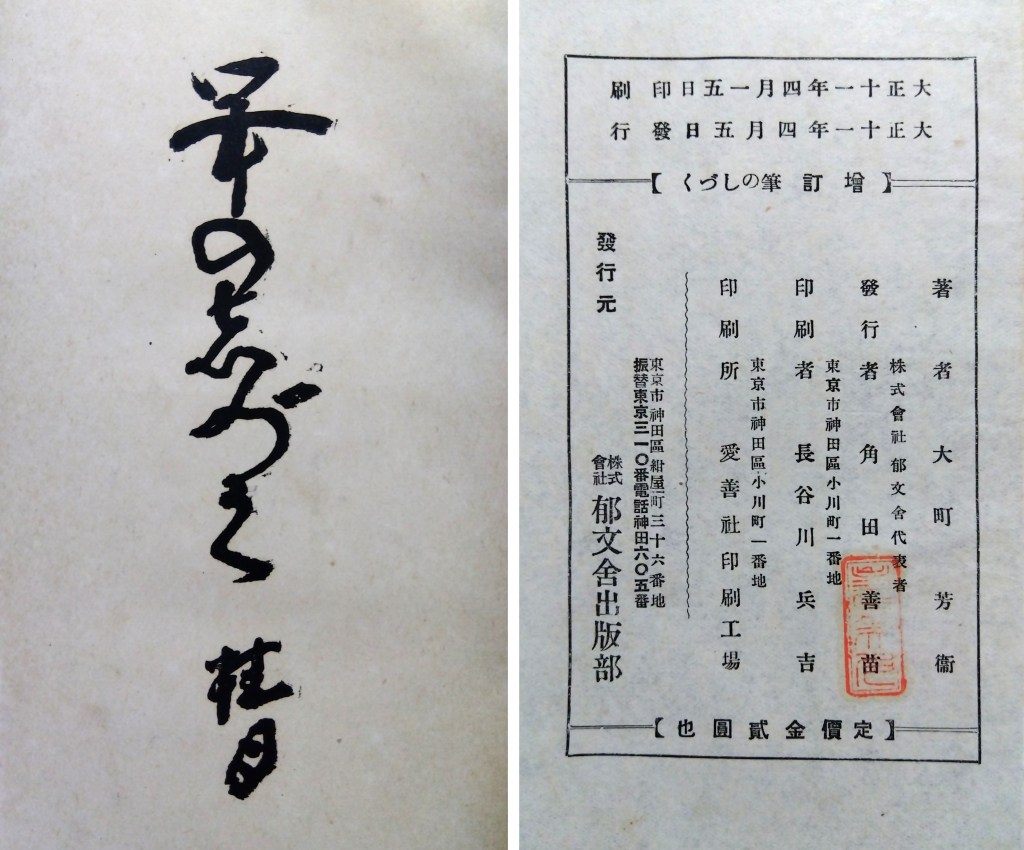 筆の志づく
桂月
大正十一年四月一五日印刷
大正十一年四月五日發行
【增訂筆のしづく】
著者 大町芳衞
株式會社郁文舍代表者
發行者 角田善苗
東京市神田區小川町一番地
印刷者 長谷川兵吉
東京市神田區小川町一番地
印刷所 愛善社印刷工場
發行元
東京市神田區紺屋町三十六番地
振替東京三一〇番電話神田六〇五番
株式會社 郁文舍出版部
【定價金貳圓也】